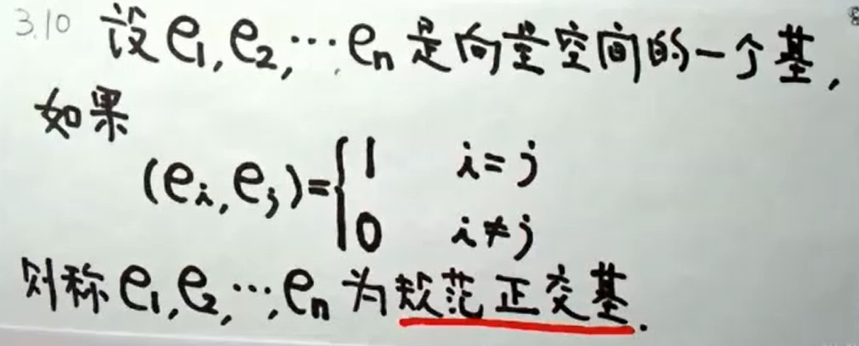 3.10 设e₁,e₂,…,eₙ是向量空间的一个基,
如果
(eᵢ,eⱼ)={1 i=j
0 i≠j
则称e₁,e₂,…,eₙ为规范正交基.